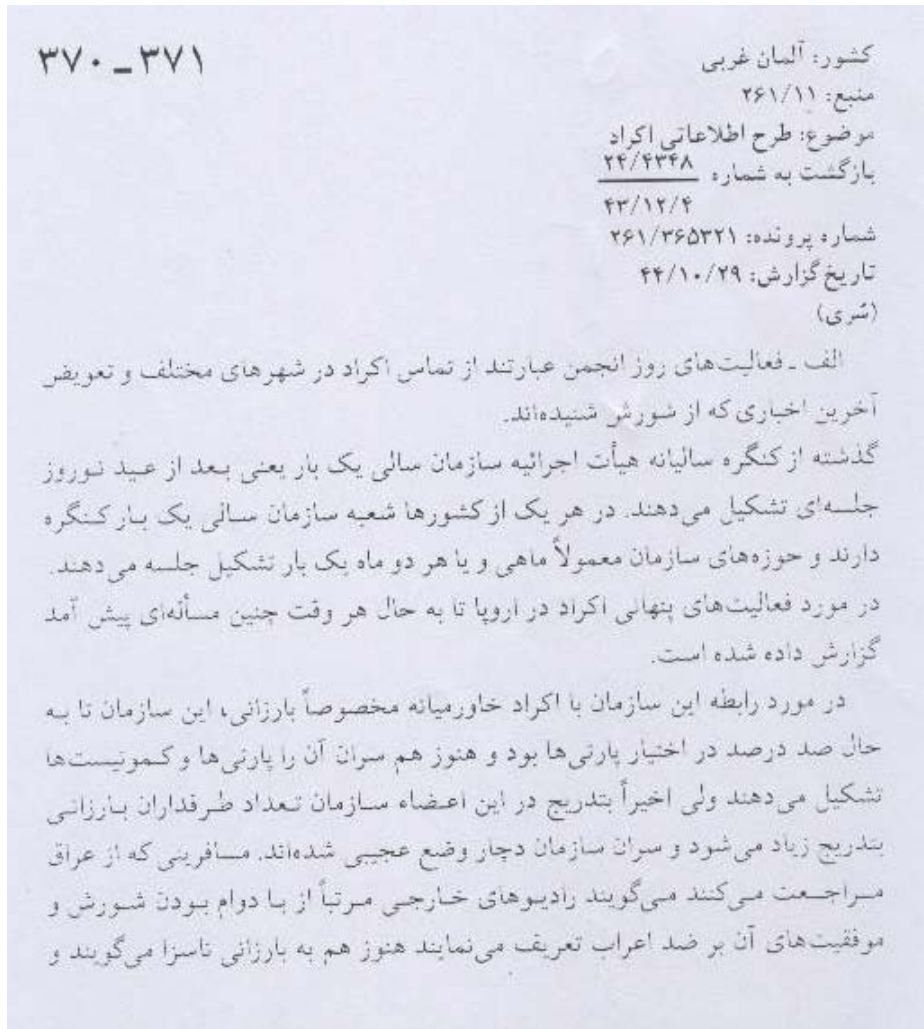 ۳۷۰ - ۳۷۱
کشور: آلمان غربی
منبع: ۲۶۱/۱۱
موضوع: طرح اطلاعاتی اکراد
بازگشت به شماره ۲۴/۴۳۴۸
۴۳/۱۲/۴
شماره پرونده: ۲۶۱/۳۶۵۳۲۱
تاریخ گزارش: ۴۴/۱۰/۲۹
(سّری)
الف ـ فعالیت‌های روز انجمن عبارتند از تماس اکراد در شهرهای مختلف و تعویض
آخرین اخباری که از شورش شنیده‌اند.
گذشته از کنگره سالیانه هیأت اجرائیه سازمان سالی یک بار یعنی بعد از عید نوروز
جلسه‌ای تشکیل می‌دهند. در هر یک از کشورها شعبه سازمان سالی یک بار کنگره
دارند و حوزه‌های سازمان معمولاً ماهی و یا هر دو ماه یک بار تشکیل جلسه می‌دهند.
در مورد فعالیت‌های پنهانی اکراد در اروپا تا به حال هر وقت چنین مسأله‌ای پیش آمد
گزارش داده شده است.
در مورد رابطه این سازمان با اکراد خاورمیانه مخصوصاً بارزانی، این سازمان تا به
حال صد درصد در اختیار پارتی‌ها بود و هنوز هم سران آن را پارتی‌ها و کمونیست‌ها
تشکیل می‌دهند ولی اخیراً بتدریج در این اعضاء سازمان تعداد طرفداران بارزانی
بتدریج زیاد می‌شود و سران سازمان دچار وضع عجیبی شده‌اند. مسافرینی که از عراق
مراجعت می‌کنند می‌گویند رادیوهای خارجی مرتباً از با دوام بودن شورش و
موفقیت‌های آن بر ضد اعراب تعریف می‌نمایند هنوز هم به بارزانی ناسزا می‌گویند و